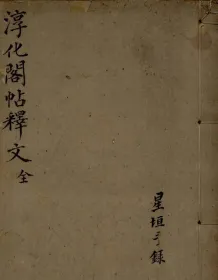 淳化閣帖釋文 全
星垣手錄